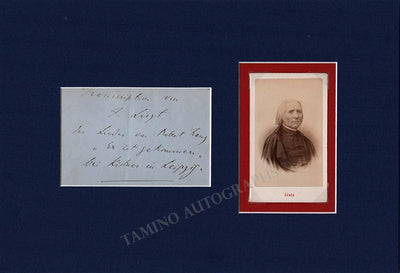 Transcription von
F. Liszt
des Liedes von Robert Franz
"Er ist gekommen"
bei Kistner in Leipzig.
Liszt
TAMINO AUTOGRAPHS